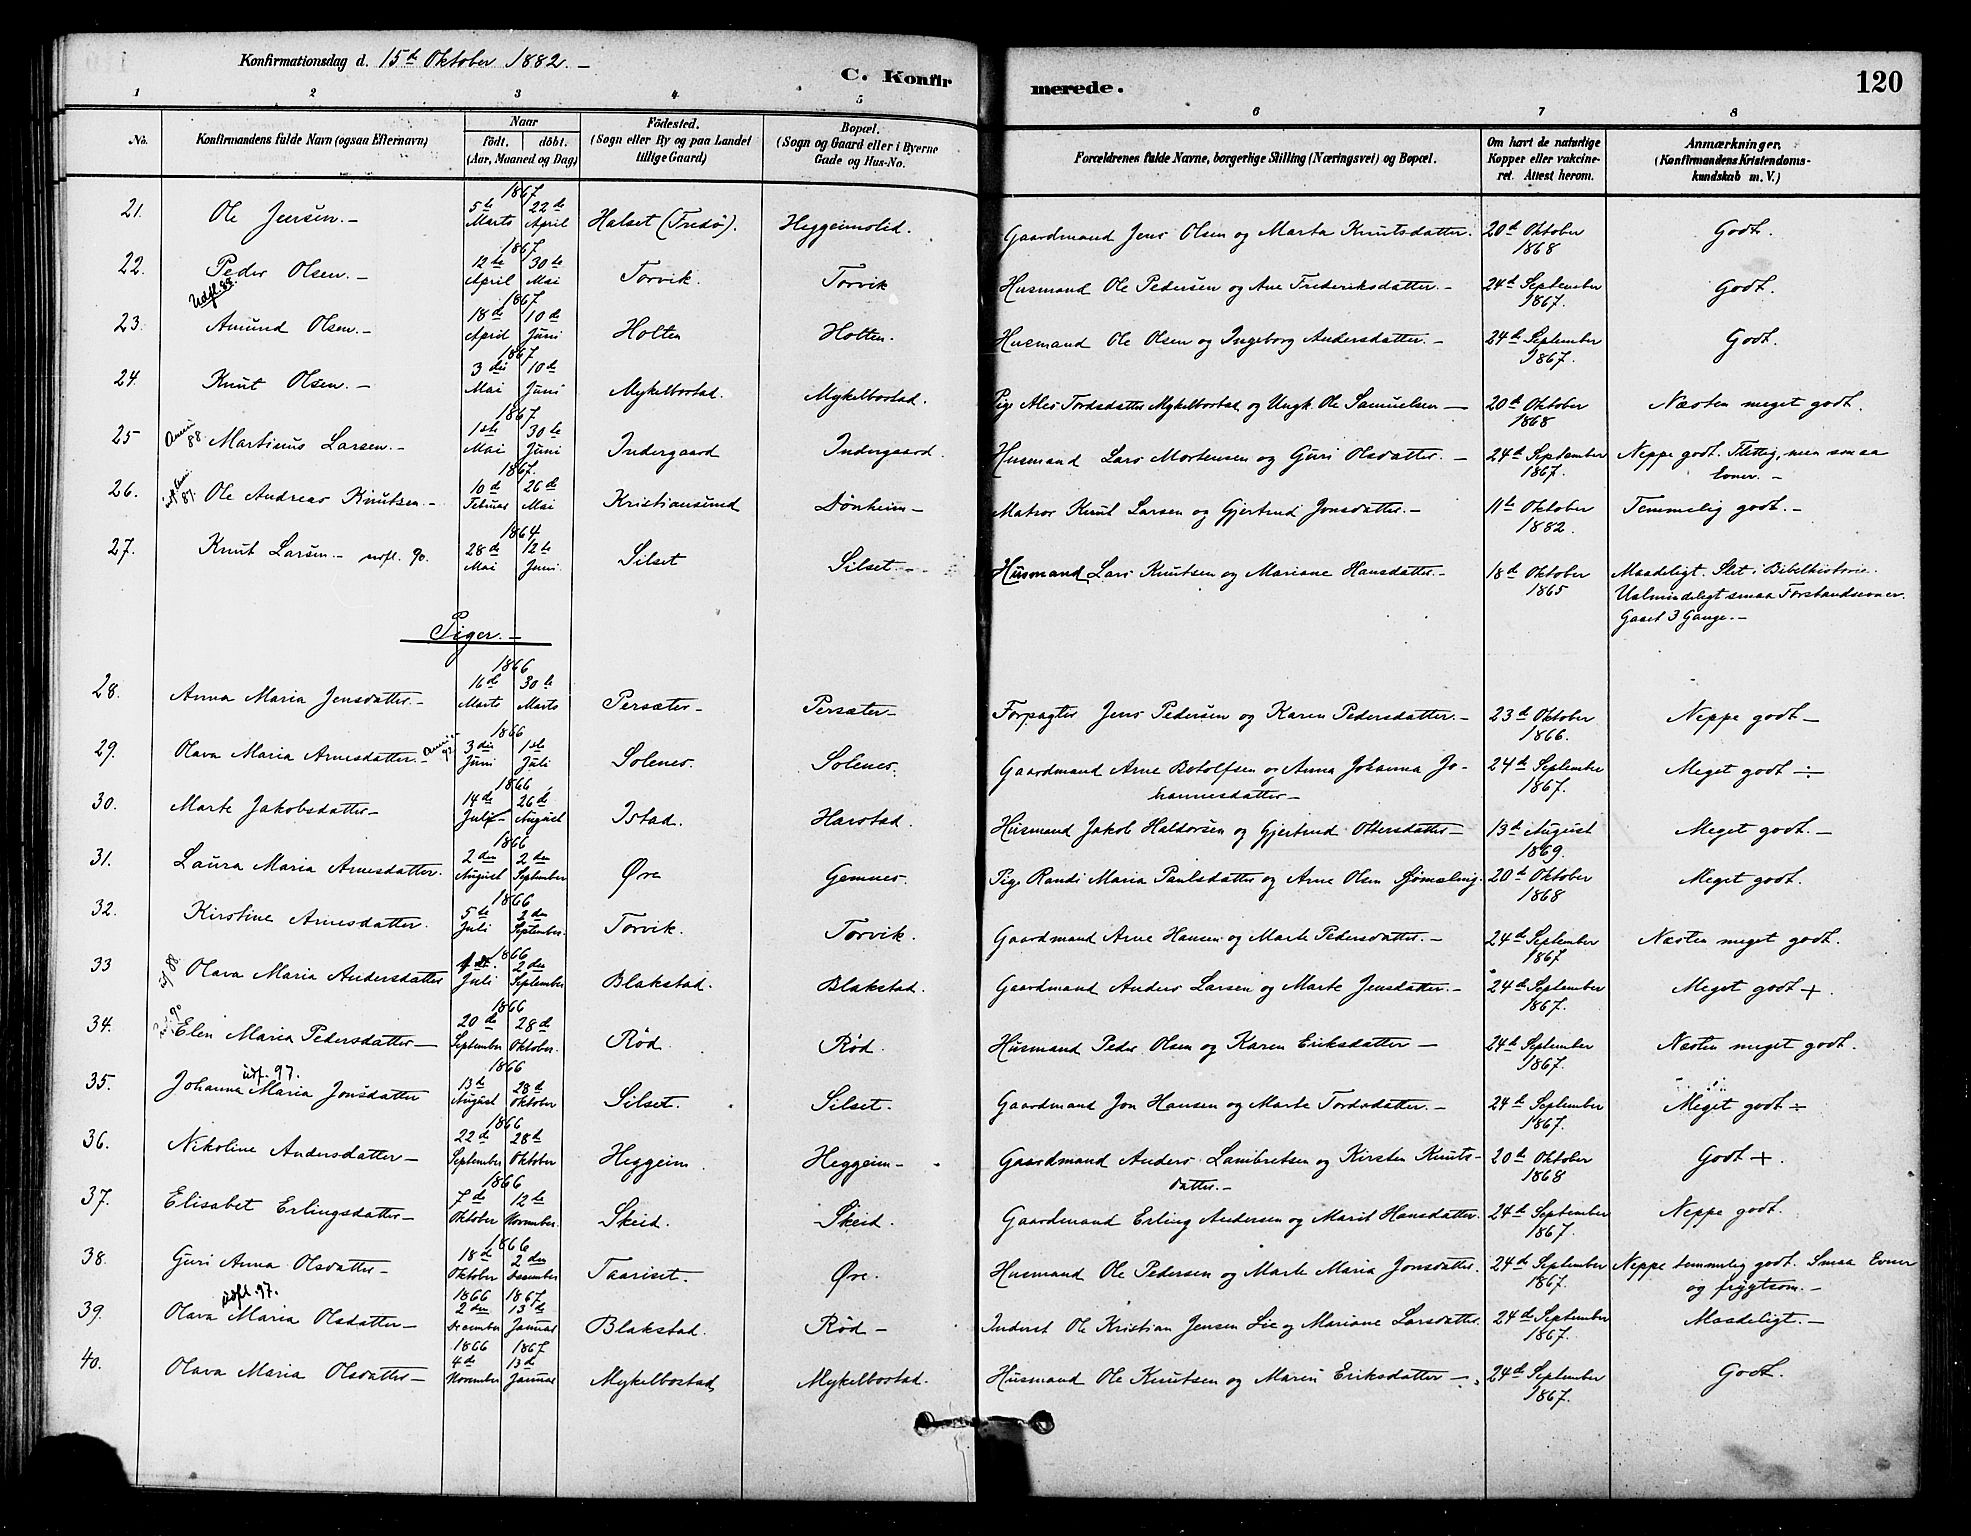 Konfirmationsdag d. 15de Oktober 1882. –
C. Konfirmerede.
120
1 2 3 4 5 6 7 8
No. | Konfirmandens fulde Navn (ogsaa Efternavn) | Naar födt. döbt. (Aar, Maaned og Dag) | Födested. (Sogn eller By og paa Landet tillige Gaard) | Bopæl. (Sogn og Gaard eller i Byerne Gade og Hus-No. | Forældrenes fulde Navne, borgerlige Stilling (Næringsvei) og Bopæl. | Om havt de naturlige Kopper eller vakcineret. Attest herom. | Anmærkninger. (Konfirmandens Kristendomskundskab m. V.)
21. Ole Jensen. – | 1867 5te Marts | 22de April | Halset (Fredø). | Heggeimslid. | Gaardmand Jens Olsen og Marta Knutsdatter. | 20de Oktober 1868 | Godt.
22. Peder Olsen. – Udfl. 83. | 1867 12te April | 30te Mai | Torvik. | Torvik | Husmand Ole Pedersen og Ane Frederiksdatter. – | 24de September 1867. | Godt.
23. Amund Olsen. – | 1867 18de April | 10de Juni | Holten | Holten. | Husmand Ole Olsen og Ingeborg Andersdatter. – | 24de September 1867. | Godt.
24. Knut Olsen. – | 1867 3die Mai | 10de Juni | Mykelbostad. | Mykelbostad. | Pige Ales Tordsdatter Mykelbostad og Ungk. Ole Samuelsen – | 20de Oktober 1868 | Næsten meget godt.
25 Martinus Larsen. – 88 | 1867. 1ste Mai | 30te Juni | Indergaard | Indergaard. | Husmand Lars Mortensen og Guri Olsdatter. – | 24de September 1867. | Neppe godt. Flittig, men smaa Evner. –
26. Ole Andreas Knutsen. – 87. | 1867. 10de Februar | 26de Mai | Kristiansund | Dønheim – | Matros Knut Larsen og Gjertrud Jonsdatter. – | 11te Oktober 1882. | Temmelig godt. –
27. Knut Larsen. – udfl. 90. | 1864 28de Mai | 12te Juni. | Silset | Silset. – | Husmand Lars Knutsen og Mariane Hansdatter. – | 18de Oktober 1865 | Maadeligt. Slet i Bibelhistorie. Ualmindeligt smaa Forstandsevner. Gaaet 3 Gange. –
Piger. –
28. Anna Maria Jensdatter. – | 1866 16de Marts | 30te Marts | Persæter – | Persæter – | Forpagter Jens Pedersen og Karen Pedersdatter. – | 23de Oktober 1866. | Neppe godt –
29. Olava Maria Arnesdatter. – | 1866 3die Juni | 1ste Juli | Solenes. | Solenes. | Gaardmand Arne Botolfsen og Anna Johanna Johannesdatter – | 24de September 1867. | Meget godt ÷
30. Marte Jakobsdatter – | 1866. 14de Juli – | 26de August | Istad. | Harstad. | Husmand Jakob Haldorsen og Gjertrud Ottersdatter – | 13de August 1869. | Meget godt. –
31. Laura Maria Arnesdatter. | 1866 2den August | 2den September | Øre | Gemnes. | Pige Randi Maria Paulsdatter og Arne Olsen Gjømeling. | 20de Oktober 1868 | Meget godt.
32. Kirstine Arnesdatter. | 1866 5te Juli | 2den September. | Torvik. | Torvik. | Gaardmand Arne Hansen og Marte Pedersdatter. – | 24de September 1867 | Næsten meget godt.
33 Olava Maria Andersdatter 88. | 1866 Juli | 2den September | Blakstad. | Blakstad. | Gaardmand Anders Larsen og Marte Jensdatter. – | 24de September 1867. | Meget godt +.
34. Elen Maria Pedersdatter – 90 | 1866 20de September | 28de Oktober. | Rød. | Rød. | Husmand Peder Olsen og Karen Eriksdatter – | 24de September 1867. | Næsten meget godt.
35. Johanna Maria Jonsdatter udf. 97. | 1866 13de August | 28de Oktober | Silset. | Silset. | Gaardmand Jon Hansen og Marte Tordsdatter. – | 24de September 1867. | Meget godt ÷
36. Nikoline Andersdatter – | 1866 22de September | 28de Oktober | Heggeim. | Heggeim – | Gaardmand Anders Lambretsen og Kirsten Knutsdatter. – | 20de Oktober 1868 | Godt +.
37. Elisabet Erlingsdatter – | 1866 7de Oktober | 12te November. | Skeid. | Skeid. | Gaardmand Erling Andersen og Marit Hansdatter. | 24de September 1867. | Neppe godt.
38. Guri Anna Olsdatter – | 1866 18de Oktober | 2den Desember | Taariset. | Øre. | Husmand Ole Pedersen og Marte Maria Jonsdatter. | 24de September 1867. | Neppe temmelig godt. Smaa Evner og frygtsom. –
39. Olava Maria Olsdatter – udfl. 97. | 1866 2den December | 1867 13de Januar | Blakstad. | Rød – | Inderst Ole Kristian Jensen Lie og Mariane Larsdatter. | 24de September 1867. | Maadeligt. –
40. Olava Maria Olsdatter – | 1866 4de November | 1867 13de Januar | Mykelbostad | Mykelbostad. | Husmand Ole Knutsen og Maren Eriksdatter – | 24de September 1867. | Godt.